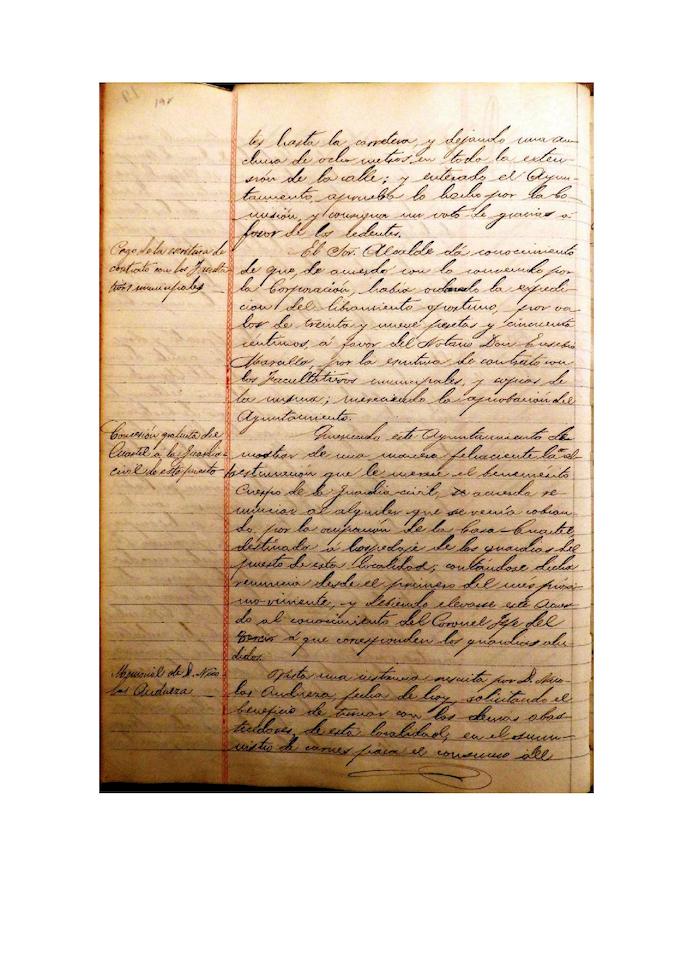 198
tes hasta la carretera y dejando una an-
chura de ocho metros en todo la exten-
sión de la calle; y enterado el Ayun-
tamiento, aprueba lo hecho por la Co-
misión, y consigna un voto de gracias á
favor de los cedentes.
Pago de la escritura de
contrato con los Faculta-
tivos municipales
El Sor. Alcalde dá conocimiento
de que, de acuerdo con lo convenido por
la Corporación, había ordenado la expedi-
cion del libramiento oportuno, por va-
lor de treinta y nueve pesetas y cincuenta
centimos, á favor del Notario Don Eusebio
por la escritura de contrato con
los Facultativos municipales, y copias de
la misma; mereciendo la aprobación del
Ayuntamiento.
Concesión gratuita del
Cuartel á la Guardia
civil de este puesto
Queriendo este Ayuntamiento de-
mostrar de una manera fehaciente la al-
ta estimación que le merece el benemérito
Cuerpo de la Guardia civil, se acuerda re-
nunciar al alquiler que se venía cobran-
do, por la ocupación de la Casa-Cuartel
destinada á hospedaje de los guardias del
puesto de esta localidad; contándose dicha
renuncia desde el primero del mes próxi-
mo viniente, y debiendo elevarse este acuer-
do al conocimiento del Coronel Jefe del
Tercio á que corresponden los guardias alu-
didos.
Memorial de D. Nico-
las Andueza
Vista una instancia suscrita por D. Nico-
las Andueza, fecha de hoy, solicitando el
beneficio de turnar con los demas abas-
tecedores de esta localidad, en el sumi-
nistro de carnes para el consumo del